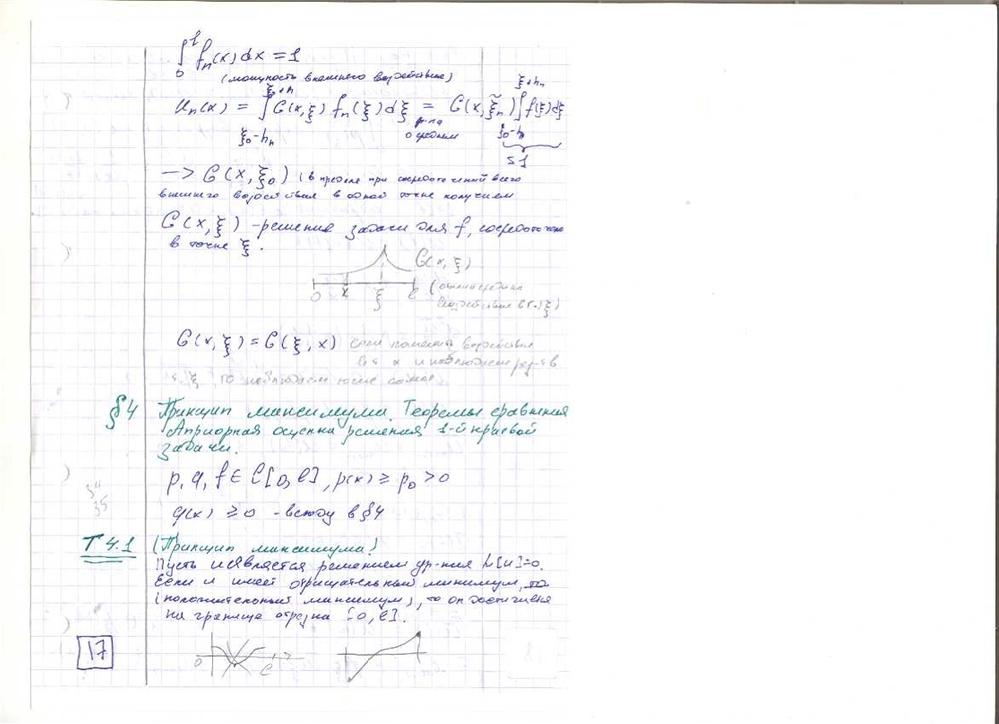 ∫₀ˡ fₙ(x) dx = 1
(мощность внешнего воздействия)
uₙ(x) = ∫_{ξ₀-hₙ}^{ξ₀+h} G(x,ξ) fₙ(ξ) dξ = G(x, ξ̃ₙ) ∫_{ξ₀-hₙ}^{ξ₀+hₙ} f(ξ) dξ
ф-ла
о среднем
≡1
→ G(x, ξ₀) (в пределе при сосредоточении всего
внешнего воздействия в одной точке получаем
G(x, ξ) - решение задачи для f, сосредоточен
в точке ξ.
G(x, ξ)
0 x ξ l
воздействие в т. ξ)
G(x, ξ) = G(ξ, x) если поместить воздействие
в т. x и наблюдаем рез-т в
т. ξ, то наблюдаем то же самое
§4 Принцип максимума. Теоремы сравнения
Априорная оценка решения 1-й краевой
задачи.
p, q, f ∈ C[0, l], p(x) ≥ p₀ > 0
q(x) ≥ 0 - всюду в §4
T 4.1 (Принцип максимума)
Пусть u является решением ур-ния L[u]=0.
Если u имеет отрицательный минимум,
(положительный максимум), то он достигается
на границе отрезка [0, l].
17
0 l